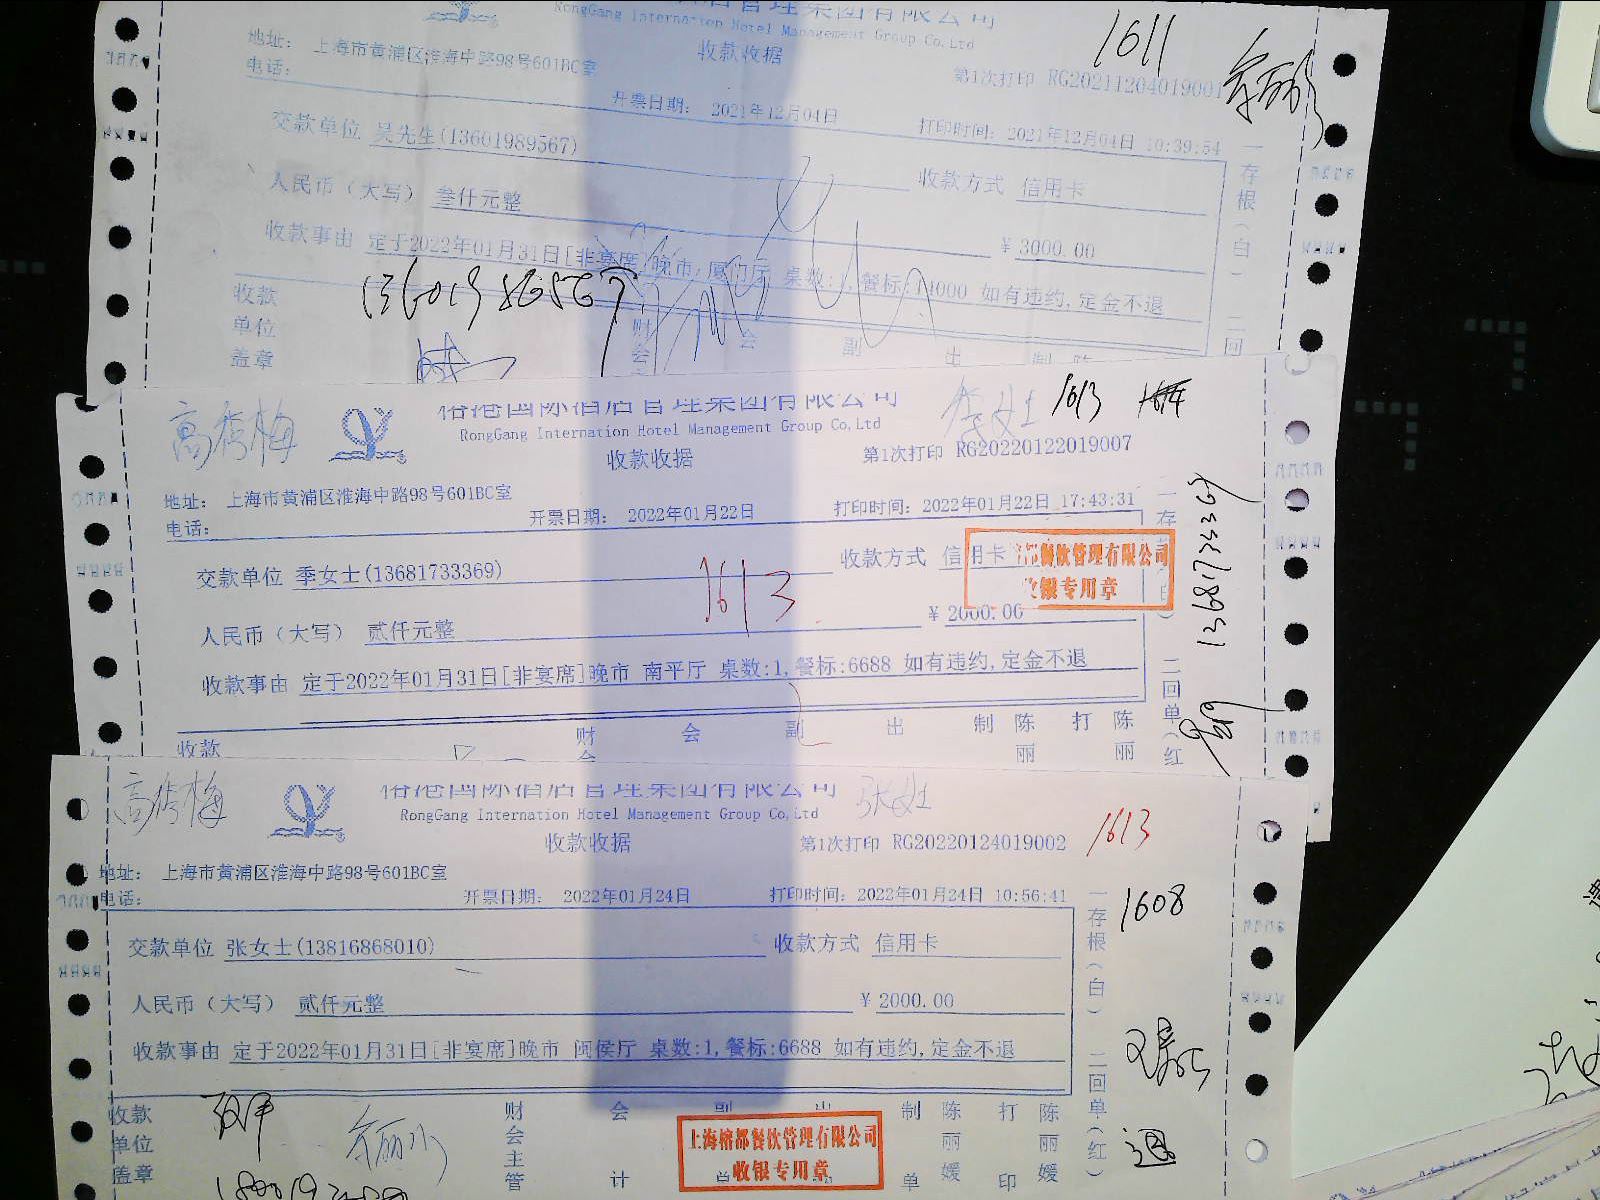 管理集团有限公司
RongGang Internation Hotel Management Group Co,Ltd
1611
地址： 上海市黄浦区淮海中路98号601BC室
收款收据
第1次打印 RG20211204019001
电话：
开票日期： 2021年12月04日
打印时间：2021年12月04日 10:39:54
交款单位 吴先生(13601989567)
收款方式 信用卡
人民币（大写） 叁仟元整
¥ 3000.00
收款事由 定于2022年01月31日[非宴席]晚市 厦门厅 桌数:1,餐标:14000 如有违约,定金不退
收款单位盖章
财 会 副 出 制 陈
一存根（白） 二回
高秀梅
国际酒店管理集团有限公司
李女士
1613
RongGang Internation Hotel Management Group Co,Ltd
收款收据
第1次打印 RG20220122019007
地址： 上海市黄浦区淮海中路98号601BC室
电话：
开票日期： 2022年01月22日
打印时间：2022年01月22日 17:43:31
交款单位 季女士(13681733369)
1613
收款方式 信用卡
都餐饮管理有限公司
收银专用章
人民币（大写） 贰仟元整
¥ 2000.00
收款事由 定于2022年01月31日[非宴席]晚市 南平厅 桌数:1,餐标:6688 如有违约,定金不退
收款
财会 会 副 出 制 陈丽 打 陈丽
二回单（红
13681733369
高秀梅
国际酒店管理集团有限公司
张女士
RongGang Internation Hotel Management Group Co,Ltd
收款收据
第1次打印 RG20220124019002
1613
地址： 上海市黄浦区淮海中路98号601BC室
电话：
开票日期： 2022年01月24日
打印时间：2022年01月24日 10:56:41
1608
交款单位 张女士(13816868010)
收款方式 信用卡
人民币（大写） 贰仟元整
¥ 2000.00
收款事由 定于2022年01月31日[非宴席]晚市 闽侯厅 桌数:1,餐标:6688 如有违约,定金不退
一存根（白） 二回单（红）
退
收款单位盖章
财会主管 会计 副 出 制单 陈丽媛 打印 陈丽媛
上海榕都餐饮管理有限公司
收银专用章